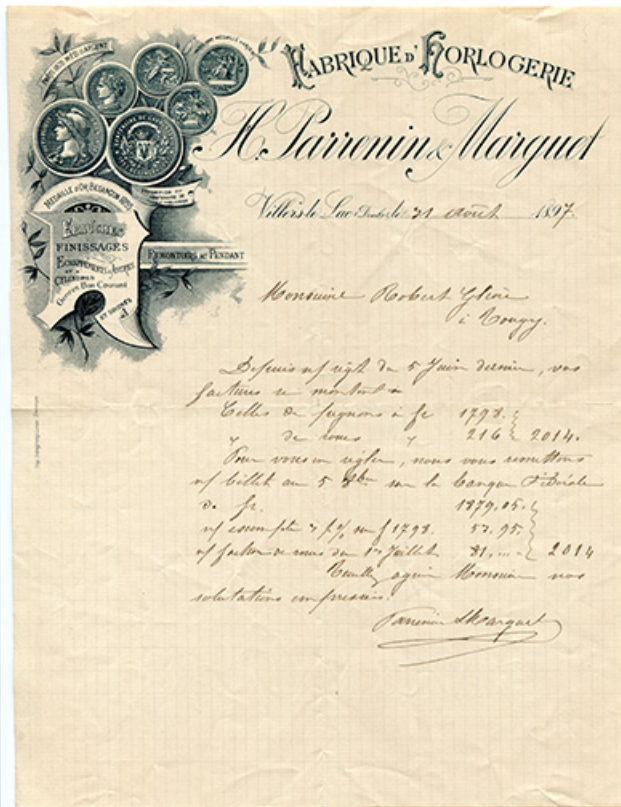 FABRIQUE D'HORLOGERIE
H. Parrenin & Marguet
Villers le Lac (Doubs) le 31 août 1897.
MÉDAILLE D'OR, BESANÇON 1893
ÉBAUCHES
FINISSAGES
ÉCHAPPEMENTS À ANCRES
ET À
CYLINDRES
Genres Bon Courant
ET SOIGNÉS
REMONTOIRS AU PENDANT
Monsieur Robert
à
Depuis n/ régt du 5 Juin dernier, vos
factures se montent à
Celles de pignons à fr 1798.
" de roues " 216 2014.
Pour vous en régler, nous vous remettons
n/ billet au 5 8bre sur la banque Fédérale
de fr. 1879,05.
n/ escompte 3 % sur f 1798. 53.95
n/ facture de roues du 1er Juillet 81,... 2014
Veuillez agréer Monsieur nos
salutations empressées.
Parrenin & Marguet